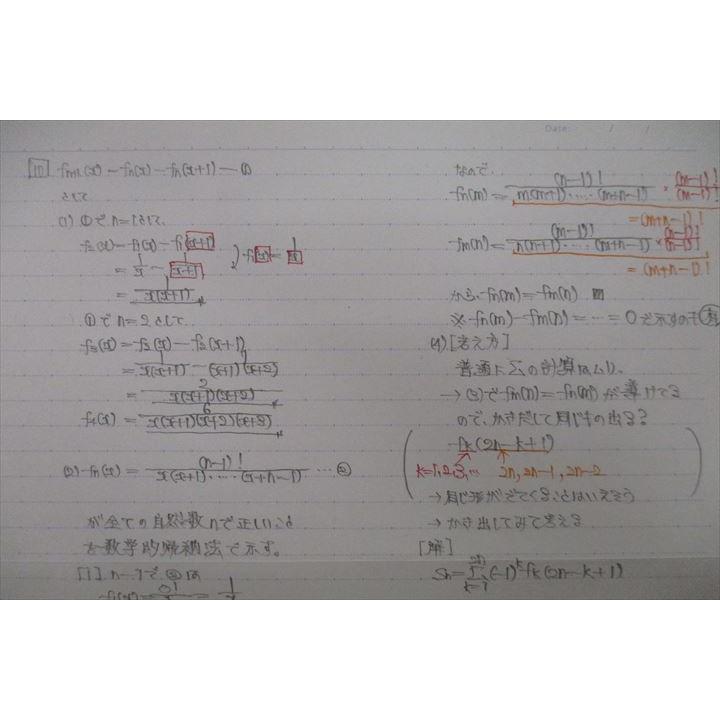 Date: / /
10 fn+1(x) = fn(x) - fn(x+1) — ①
として
(1) ①で n=1として、
f2(x) = f1(x) - f1(x+1) ) f1(x) = 1/x
= 1/x - 1/(x+1)
= 1/x(x+1)
①で n=2として
f3(x) = f2(x) - f2(x+1)
= 1/x(x+1) - 1/(x+1)(x+2)
= 2/x(x+1)(x+2)
f4(x) = 6/x(x+1)(x+2)(x+3)
(2) fn(x) = (n-1)!/x(x+1)・…・(x+n-1) … ②
が全ての自然数nで正しいこと
を数学的帰納法で示す。
[1] n=1で②は
f1(x) = 0!/x = 1/x
なので
fn(m) = (n-1)!/m(m+1)・…・(m+n-1) × (m-1)!/(m-1)!
= (m+n-1)!
fm(n) = (m-1)!/n(n+1)・…・(m+n-1) × (n-1)!/(n-1)!
= (m+n-1)!
から fn(m) = fm(n)
※ fn(m) - fm(n) = … = 0 で示すのも
(4) [考え方]
普通にΣの計算はムリ、
→ (3)で fm(n) = fn(m) が導けてる
ので、かきだして同じもの出る?
fk(2n-k+1)
k=1,2,3,… 2n, 2n-1, 2n-2
→ 同じ形がでてくるとはいえそう
→ かき出してみて考える
[解]
Sn = Σ 2n k=1 (-1)^k fk(2n-k+1)